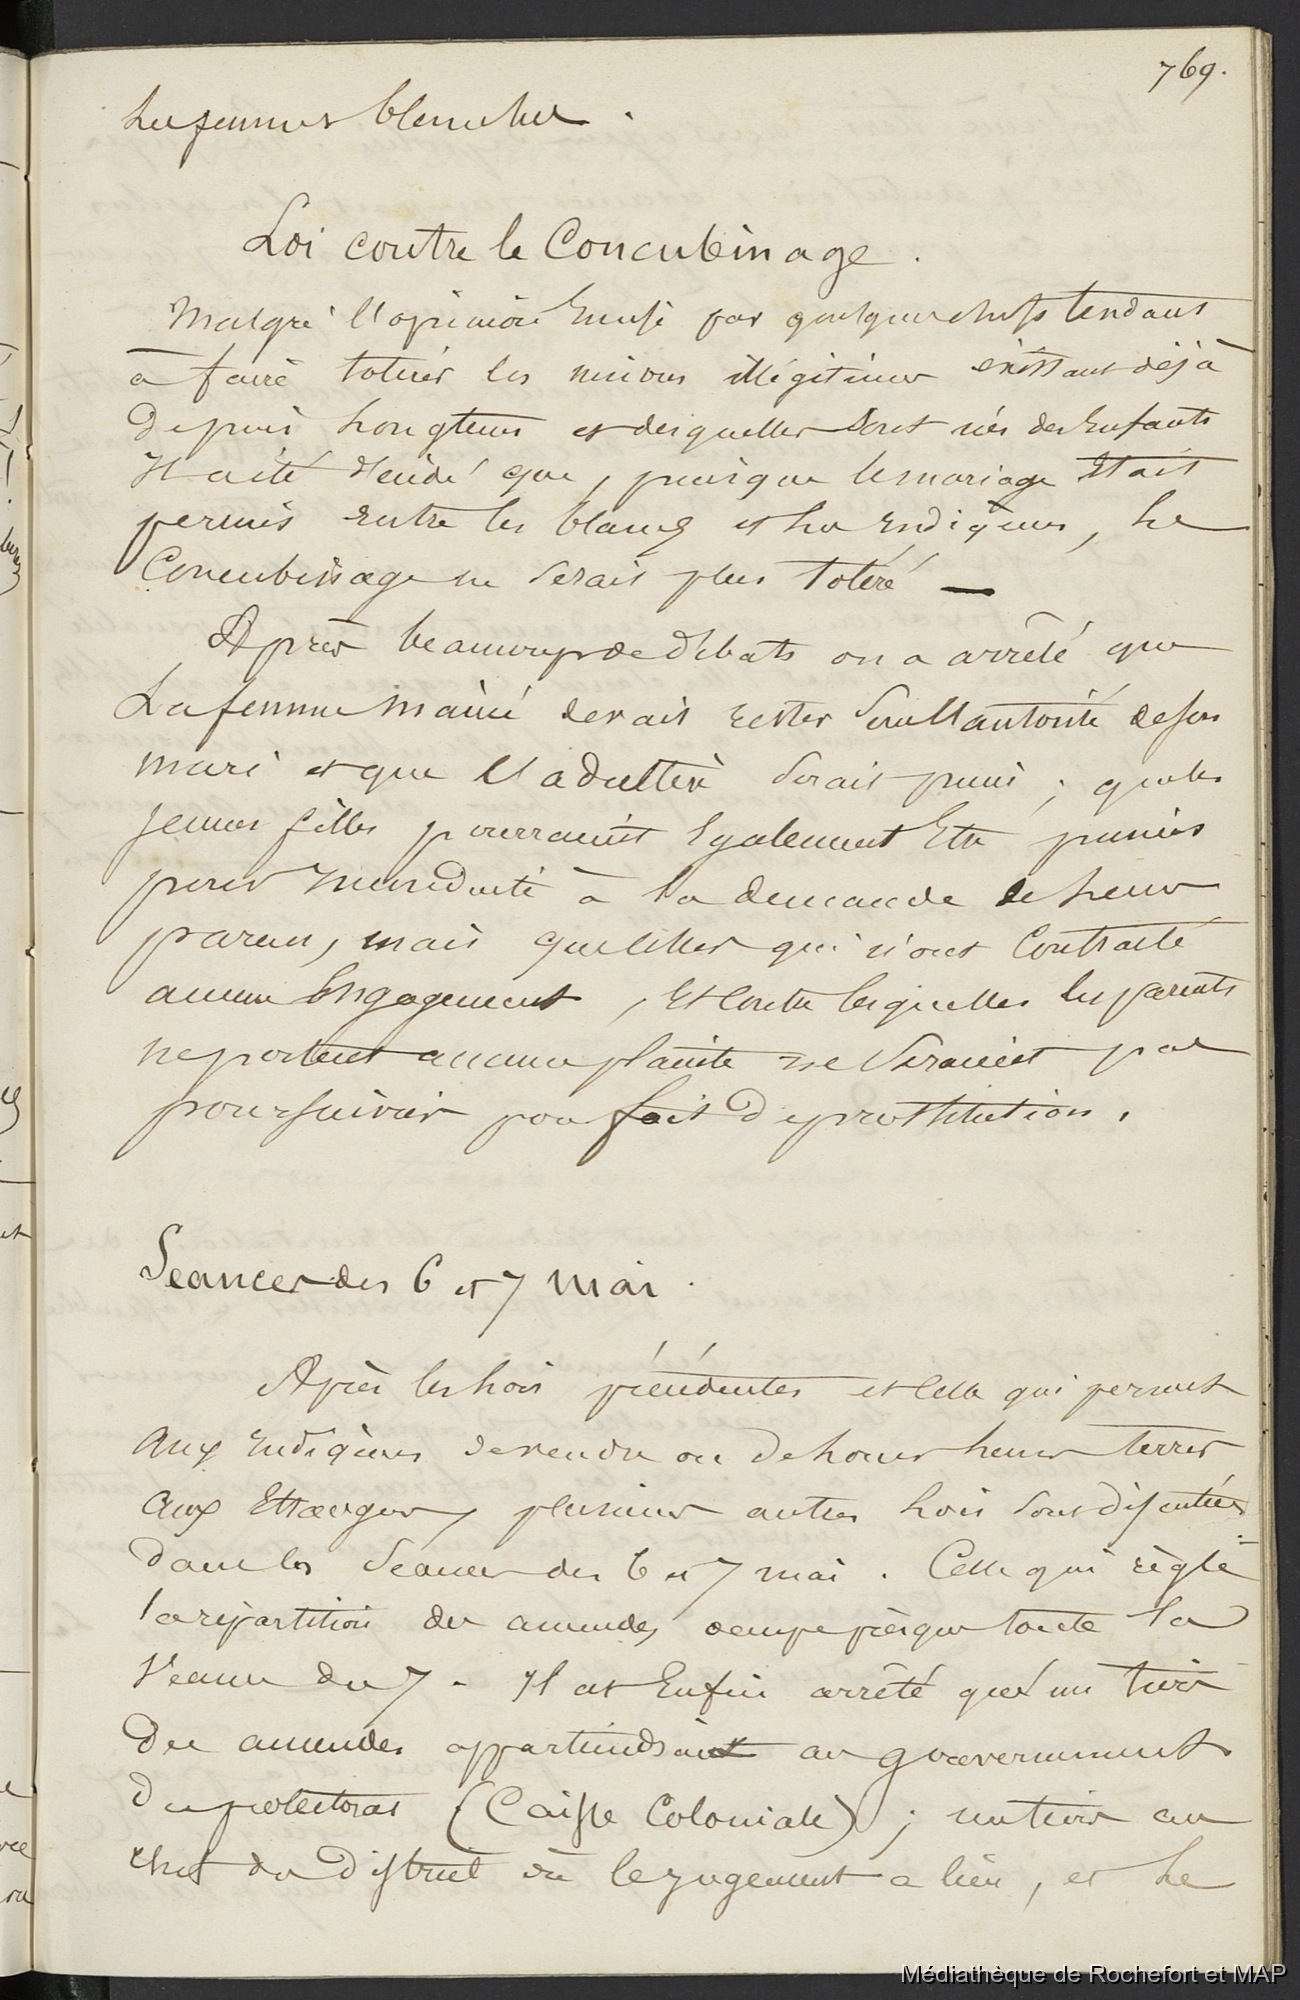 769.
Les femmes blanches.
Loi contre le Concubinage.
Malgré l'opinion Emise par quelques chefs tendant
à faire tolérer les unions illégitimes éxistant déjà
Depuis Longtems et desquelles sont nés des Enfants
Il a été décidé que, puisque le mariage était
permis entre les blancs et les Indigènes, Le
Concubinage ne serait plus toléré —
Après beaucoup de débats on a arrêté que
La femme mariée devait rester sous l'autorité de son
mari et que l'adultère serait puni ; que les
jeunes filles pourraient Egalement Etre punies
pour inconduite à la demande de Leurs
parens, mais que celles qui n'ont Contracté
aucun Engagement, et contre lesquelles les parents
ne portent aucune plainte ne seraient pas
poursuivies pour fait de prostitution.
Séances des 6 et 7 mai.
Après les Lois précédentes et celle qui permet
aux Indigènes de vendre ou de Louer Leurs terres
aux Etrangers, plusieurs autres Lois sont discutées
dans les Séances des 6 et 7 mai. Celle qui règle
la répartition des amendes occupe presque toute la
Séance du 7. Il est Enfin arrêté qu'un tiers
Des amendes appartiendrait au gouvernement
Du protectorat (Caisse Coloniale) ; un tiers au
chef du District où le jugement a lieu, et Le
Médiathèque de Rochefort et MAP